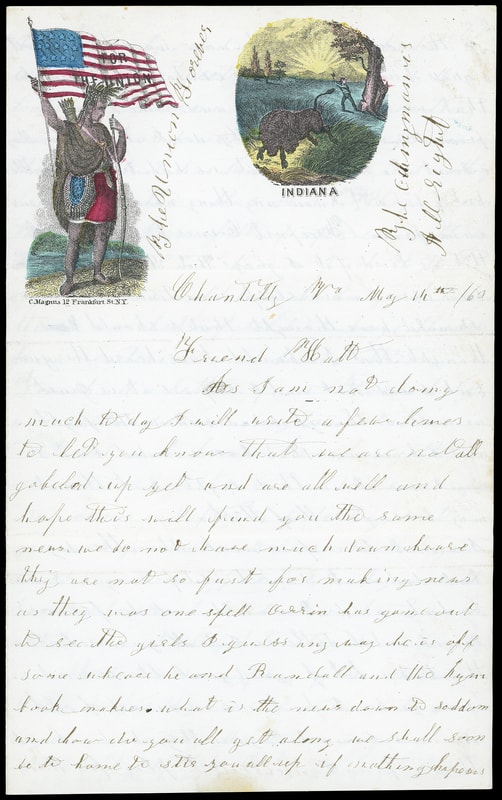 FOR
THE UNION
The Union Forever
INDIANA
C. Magnus 12 Frankfort St. N.Y.
Chantilly Va May 14th /63
Friend Hatt
As I am not doing
much to day I will write a few lines
to let you know that we are not all
gobeled up yet and are all well and
hope this will find you the same
news we do not have much down heare
thiy are not so fast for making news
as they was one spell Orrin has gone out
to see the girls I guess any way he is off
some wheare he and Randall and the hym
book maker. what is the news down to soddom
and how do you all get along we shall soon
be to home to stir you all up if nothing hapens